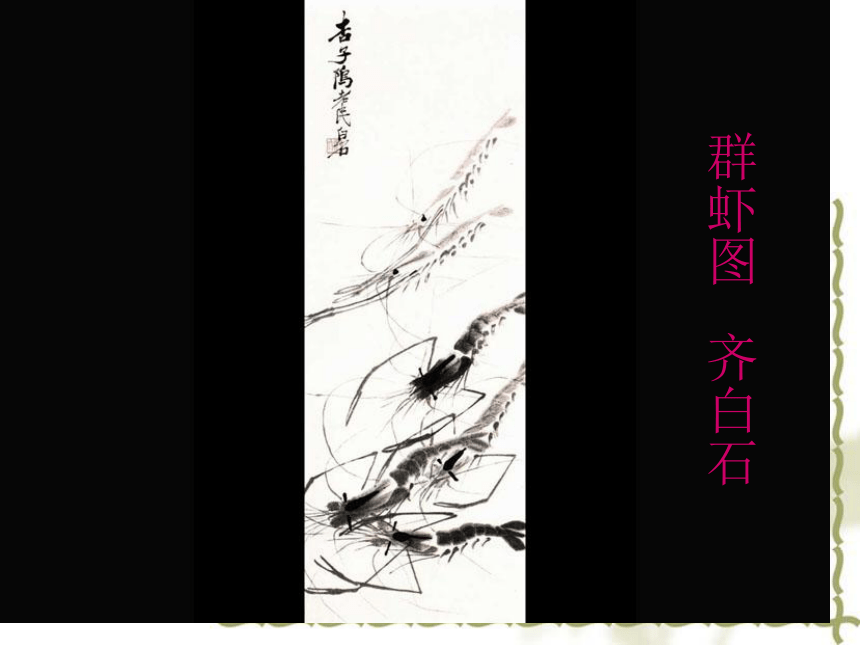 群虾图 齐白石
杏子隖老民白石